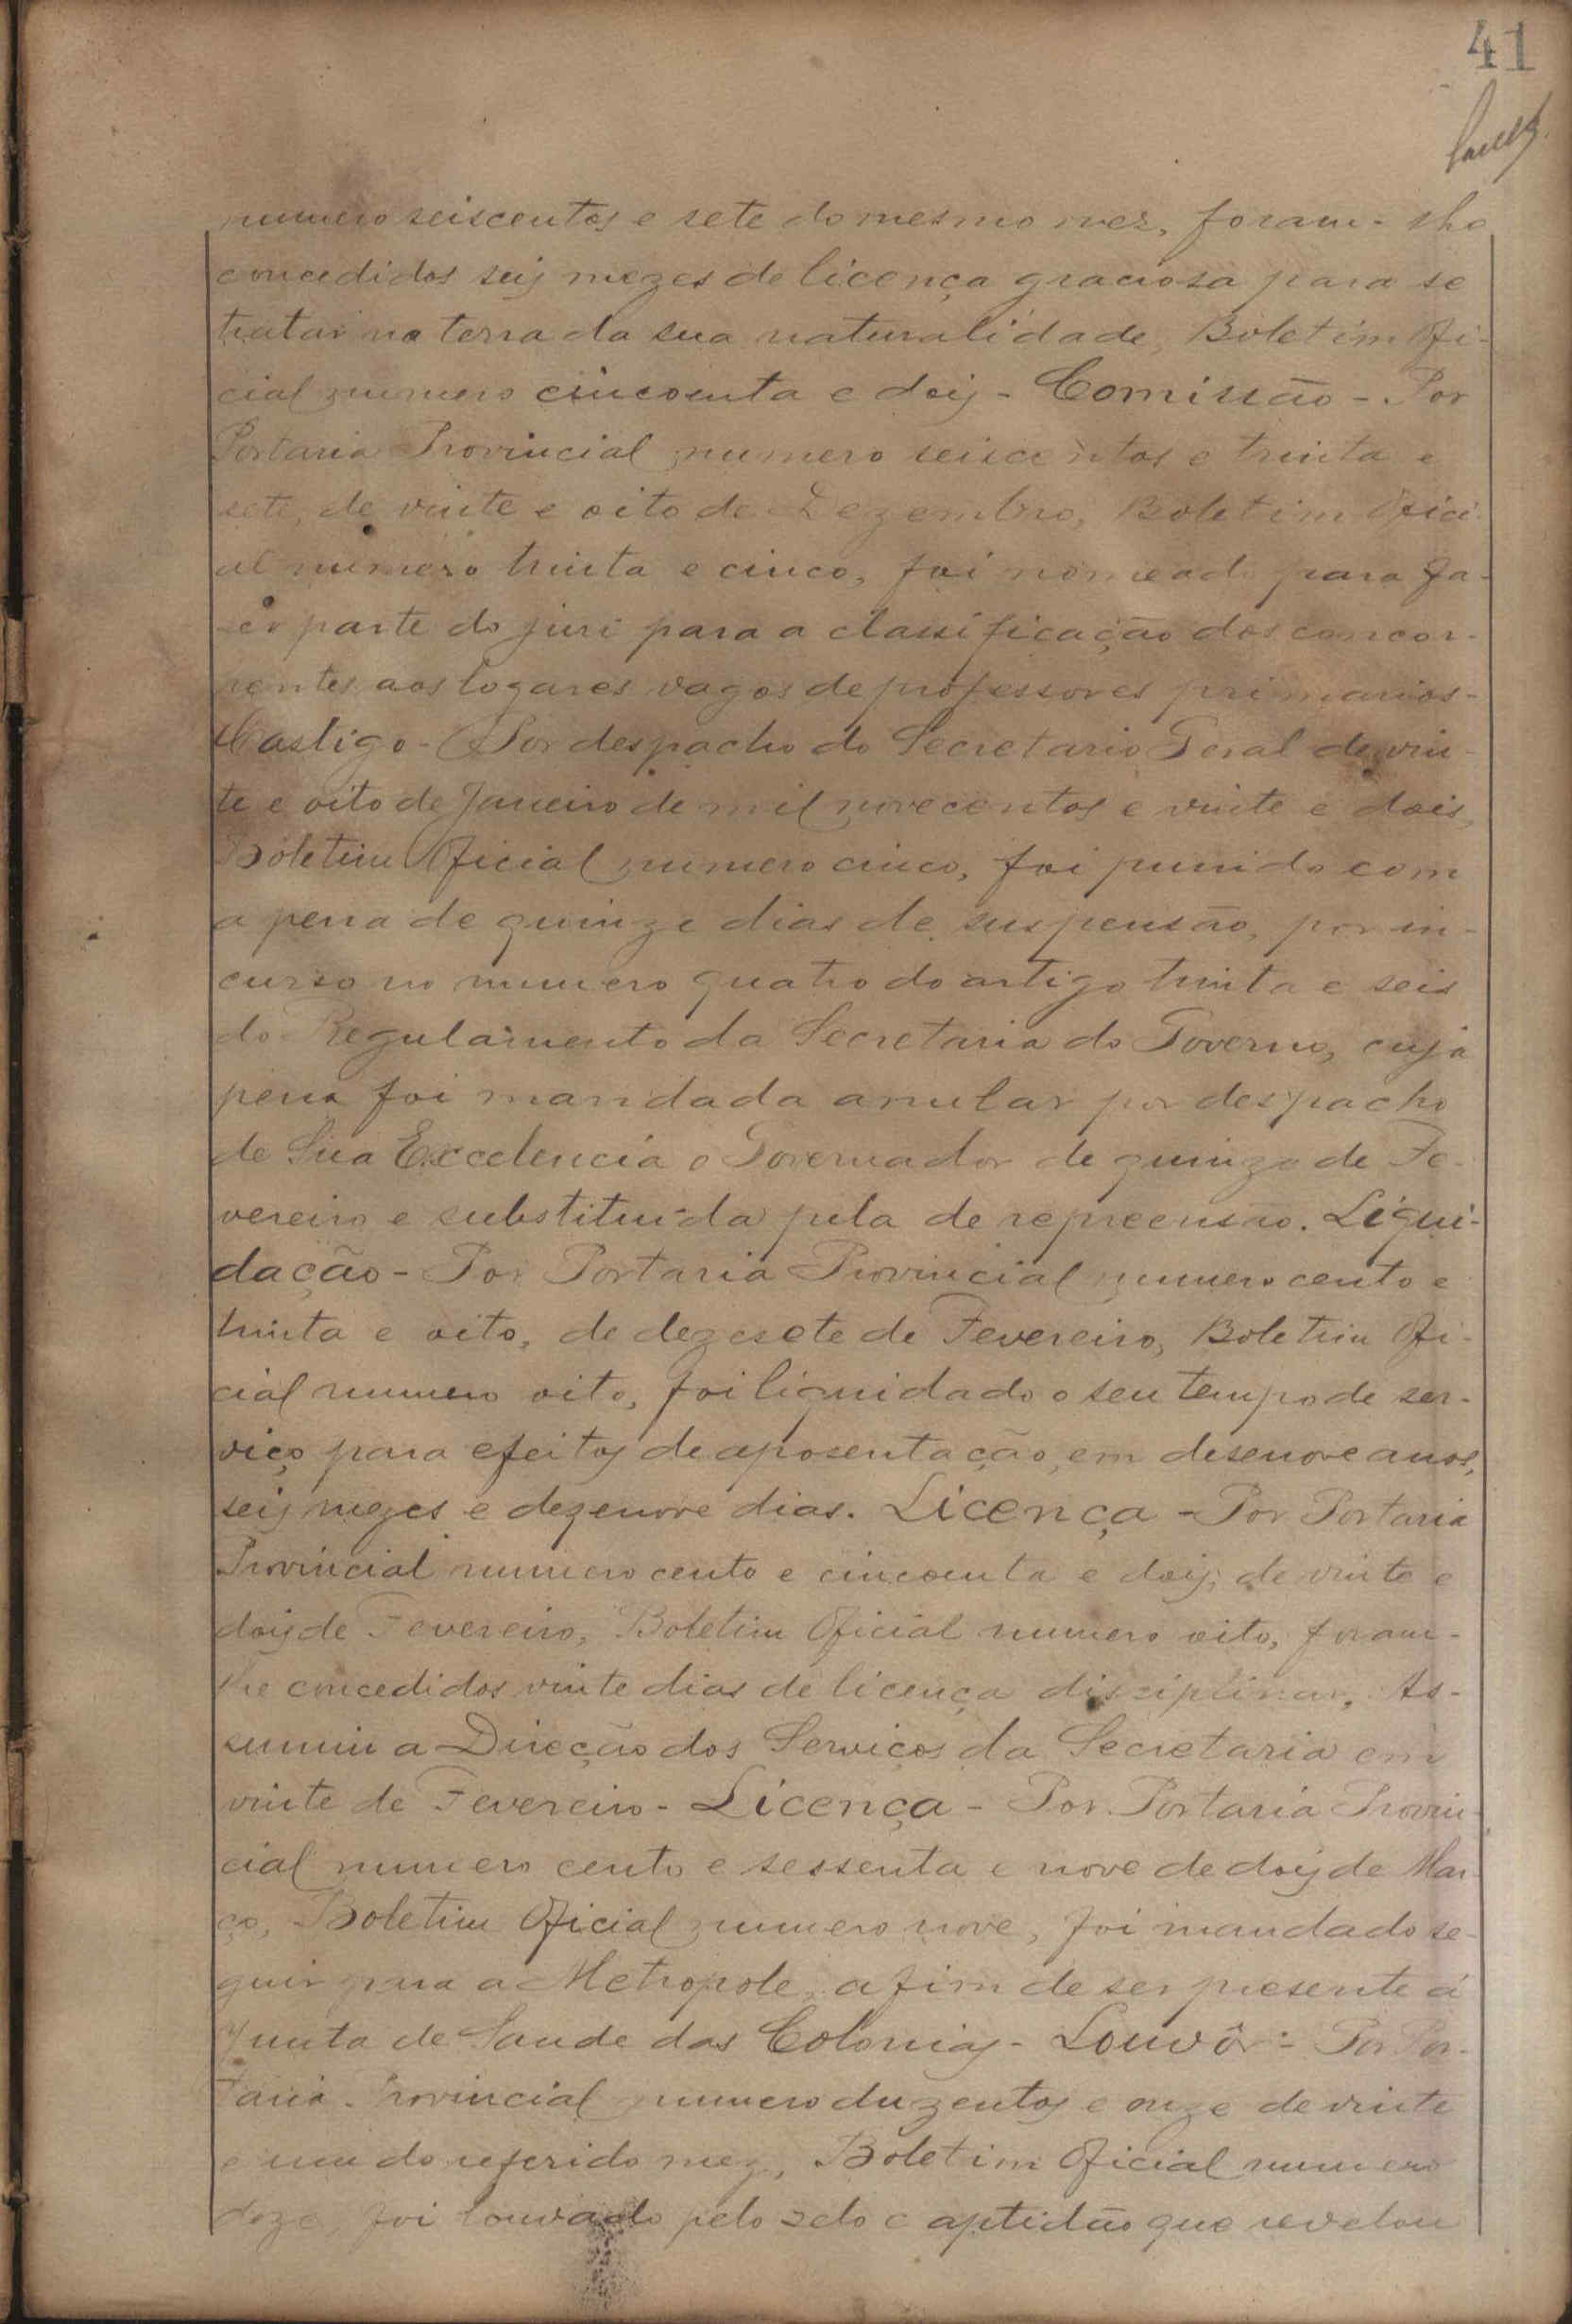 41
numero seiscentos e sete do mesmo mez, foram-lhe
concedidos seis mezes de licença graciosa para se
tratar na terra da sua naturalidade, Boletim Ofi-
cial numero cincoenta e dois - Comissão - Por
Portaria Provincial numero seiscentos e trinta e
sete, de vinte e oito de Dezembro, Boletim Ofici-
al numero trinta e cinco, foi nomeado para fa-
zer parte do juri para a classificação dos concor-
rentes aos logares vagos de professores primarios-
Castigo - Por despacho do Secretario Geral de vin-
te e oito de Janeiro de mil novecentos e vinte e dois,
Boletim Oficial numero cinco, foi punido com
a pena de quinze dias de suspensão, por in-
curso no numero quatro do artigo trinta e seis
do Regulamento da Secretaria do Governo, cuja
pena foi mandada anular por despacho
de Sua Excelencia o Governador de quinze de Fe-
vereiro e substituida pela de repreensão. Liqui-
dação - Por Portaria Provincial numero cento e
trinta e oito, de dezesete de Fevereiro, Boletim Ofi-
cial numero oito, foi liquidado o seu tempo de ser-
viço para efeitos de aposentação, em desenove anos,
seis mezes e dezenove dias. Licença - Por Portaria
Provincial numero cento e cincoenta e dois, de vinte e
dois de Fevereiro, Boletim Oficial numero oito, foram-
lhe concedidos vinte dias de licença disciplinar. As-
sumiu a Direcção dos Serviços da Secretaria em
vinte de Fevereiro - Licença - Por Portaria Provin-
cial numero cento e sessenta e nove de dois de Mar-
ço, Boletim Oficial numero nove, foi mandado se-
guir para a Metropole, afim de ser presente á
Junta de Saude das Colonias - Louvôr - Por Por-
taria Provincial numero duzentos e onze de vinte
e um do referido mez, Boletim Oficial numero
doze foi louvado pelo zelo e aptidão que revelou